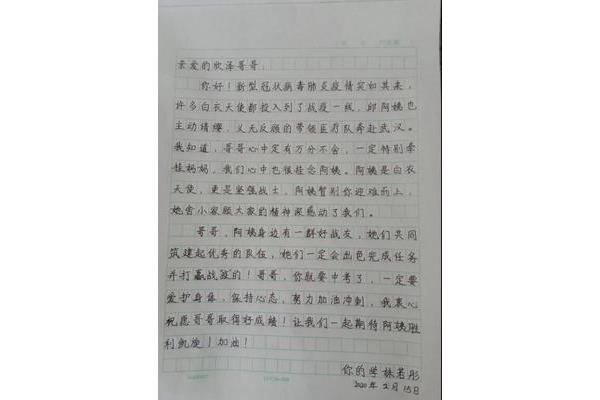 亲爱的欣泽哥哥：
你好！新型冠状病毒肺炎疫情突如其来，
许多白衣天使都投入到了战疫一线，邱阿姨也
主动请缨，义无反顾的带领医疗队奔赴武汉。
我知道，哥哥心中定有万分不舍，一定特别牵
挂妈妈，我们心中也很挂念阿姨。阿姨是白衣
天使，更是坚强战士，阿姨暂别你迎难而上，
她舍小家顾大家的精神深感动了我们。
哥哥，阿姨身边有一群好战友，她们共同
筑建起优秀的队伍，她们一定会出色完成任务
并打赢战疫的！哥哥，你就要中考了，一定要
爱护身体，保持心态，努力加油冲刺，我衷心
祝愿哥哥取得好成绩！让我们一起期待阿姨胜
利凯旋！加油！
你的学妹若彤
2020年2月15日